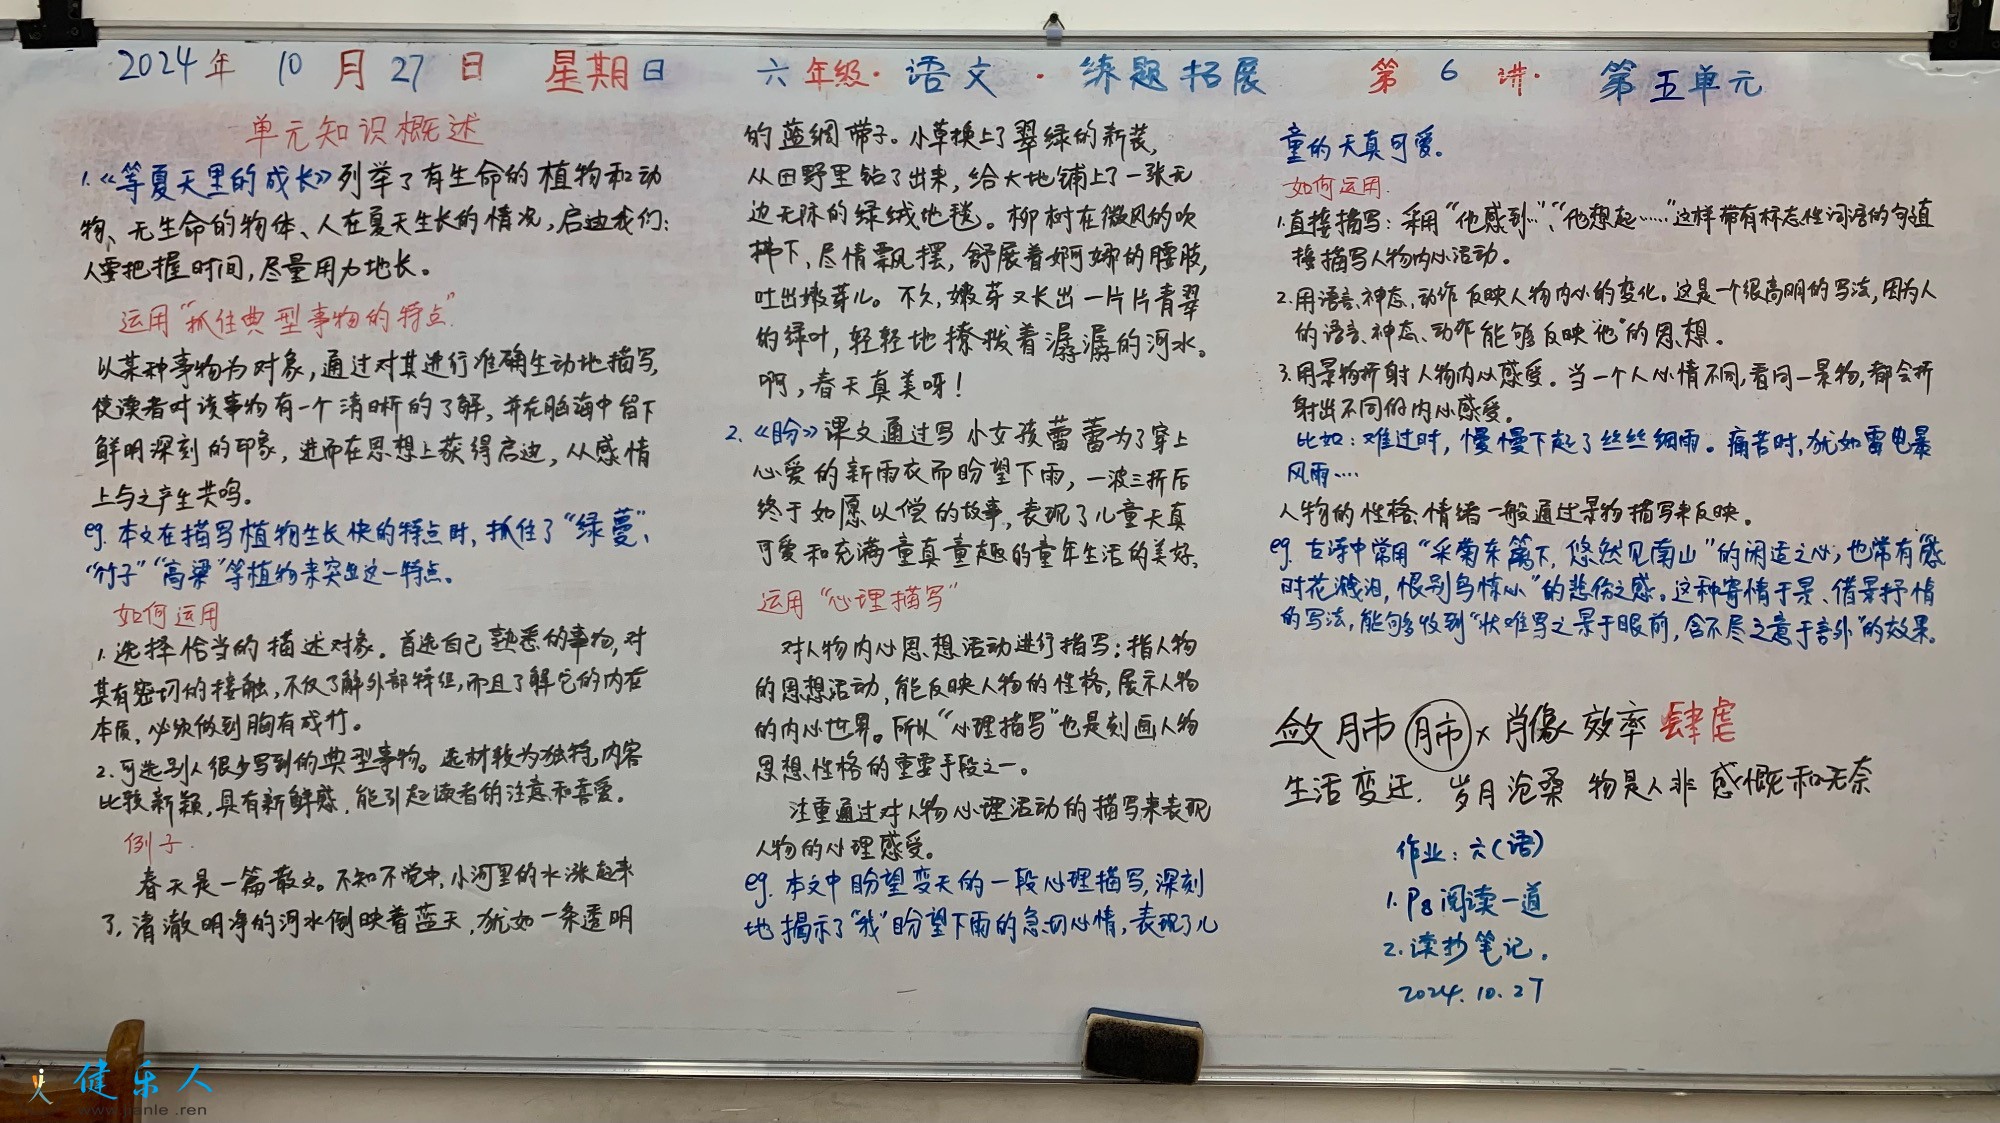 2024年 10月27日 星期日 六年级·语文·练题拓展 第6讲·第五单元
单元知识概述
1.《等夏天里的成长》列举了有生命的植物和动
物、无生命的物体、人在夏天生长的情况,启迪我们:
人要把握时间,尽量用力地长。
运用“抓住典型事物的特点”
以某种事物为对象,通过对其进行准确生动地描写,
使读者对该事物有一个清晰的了解,并在脑海中留下
鲜明深刻的印象,进而在思想上获得启迪,从感情
上与之产生共鸣。
eg.本文在描写植物生长快的特点时,抓住了“绿蔓”、
“竹子”“高粱”等植物来突出这一特点。
如何运用
1.选择恰当的描述对象。首选自己熟悉的事物,对
其有密切的接触,不仅了解外部特征,而且了解它的内在
本质,必须做到胸有成竹。
2.可选别人很少写到的典型事物。选材较为独特,内容
比较新颖,具有新鲜感,能引起读者的注意和喜爱。
例子.
春天是一篇散文。不知不觉中,小河里的水涨起来
了,清澈明净的河水倒映着蓝天,犹如一条透明
的蓝绸带子。小草换上了翠绿的新装,
从田野里钻了出来,给大地铺上了一张无
边无际的绿绒地毯。柳树在微风的吹
拂下,尽情飘摆,舒展着婀娜的腰肢,
吐出嫩芽儿。不久,嫩芽又长出一片片青翠
的绿叶,轻轻地撩拨着潺潺的河水。
啊,春天真美呀!
2.《盼》课文通过写小女孩蕾蕾为了穿上
心爱的新雨衣而盼望下雨,一波三折后
终于如愿以偿的故事,表现了儿童天真
可爱和充满童真童趣的童年生活的美好。
运用“心理描写”
对人物内心思想活动进行描写;指人物
的思想活动,能反映人物的性格,展示人物
的内心世界。所以“心理描写”也是刻画人物
思想性格的重要手段之一。
注重通过对人物心理活动的描写来表现
人物的心理感受。
eg.本文中盼望变天的一段心理描写,深刻
地揭示了“我”盼望下雨的急切心情,表现了儿
童的天真可爱。
如何运用.
1.直接描写:采用“他感到…”、“他想起……”这样带有标志性词语的句直
接描写人物内心活动。
2.用语言、神态、动作反映人物内心的变化。这是一个很高明的写法,因为人
的语言、神态、动作能够反映“他”的思想。
3.用景物折射人物内心感受。当一个人心情不同,看同一景物,都会折
射出不同的内心感受。
比如:难过时,慢慢下起了丝丝细雨。痛苦时,犹如雷电暴
风雨……
人物的性格、情绪一般通过景物描写来反映。
eg.古诗中常用“采菊东篱下,悠然见南山”的闲适之心;也常有“感
时花溅泪,恨别鸟惊心”的悲伤之感。这种寄情于景、借景抒情
的写法,能够收到“状难写之景于眼前,含不尽之意于言外”的效果。
敛 肺 肺× 肖像 效率 肆虐
生活变迁.岁月沧桑 物是人非 感慨和无奈
作业:六(语)
1.P8阅读一道
2.读抄笔记.
2024.10.27
健乐人
www.jianle.ren